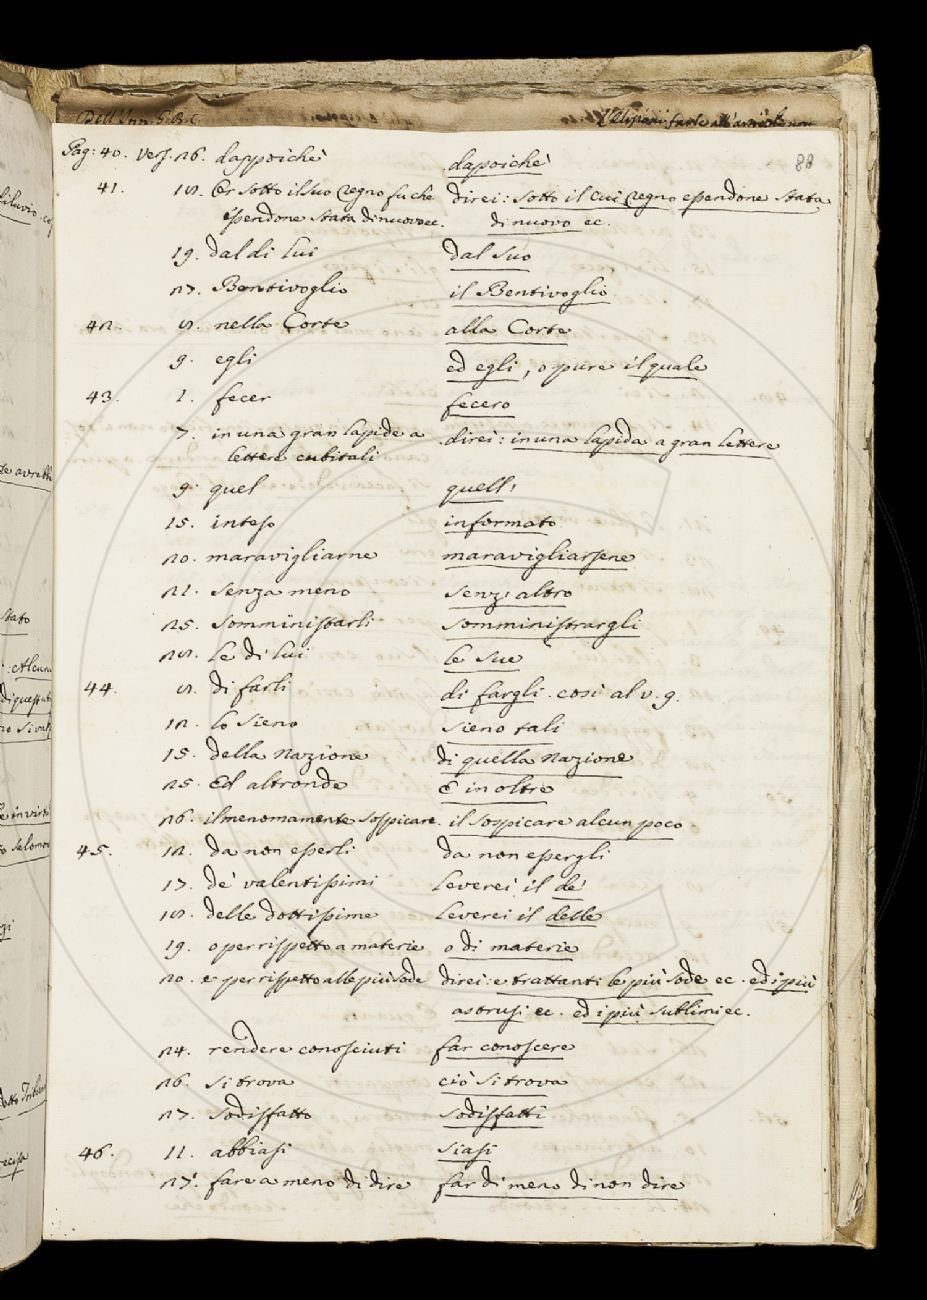 Dell'Inn. S. B. C.
Pag: 40. Vers. 26. dappoichè dapoichè 88
41. 18. Or sotto il suo regno fu che direi: sotto il cui regno essendone stata
essendone stata di nuovo ec. di nuovo ec.
19. dal di lui dal suo
27. Bentivoglio il Bentivoglio
42. 8. nella Corte alla Corte
9. egli ed egli, o pure il quale
43. 1. fecer fecero
7. in una gran lapide a direi: in una lapida a gran lettere
lettere cubitali
9. quel quell'
15. inteso informato
20. maravigliarne maravigliarsene
21. senza meno senz'altro
25. somministrarli somministrargli
28. le di lui le sue
44. 8. di farli di fargli. così al v. 9.
12. lo sieno sieno tali
15. della nazione di quella nazione
25. Ed altronde E in oltre
26. il menomamente sospicare il sospicare alcun poco
45. 12. da non esserli da non essergli
17. de' valentissimi leverei il de'
18. delle dottissime leverei il delle
19. o per rispetto a materie o di materie
20. e per rispetto alle più sode direi: e trattanti le più sode ec. ed i più
astrusi ec. ed i più sublimi ec.
24. rendere conosciuti far conoscere
26. si trova ciò si trova
27. sodisfatto sodisfatti
46. 11. abbiasi siasi
27. fare a meno di dire far di meno di non dire